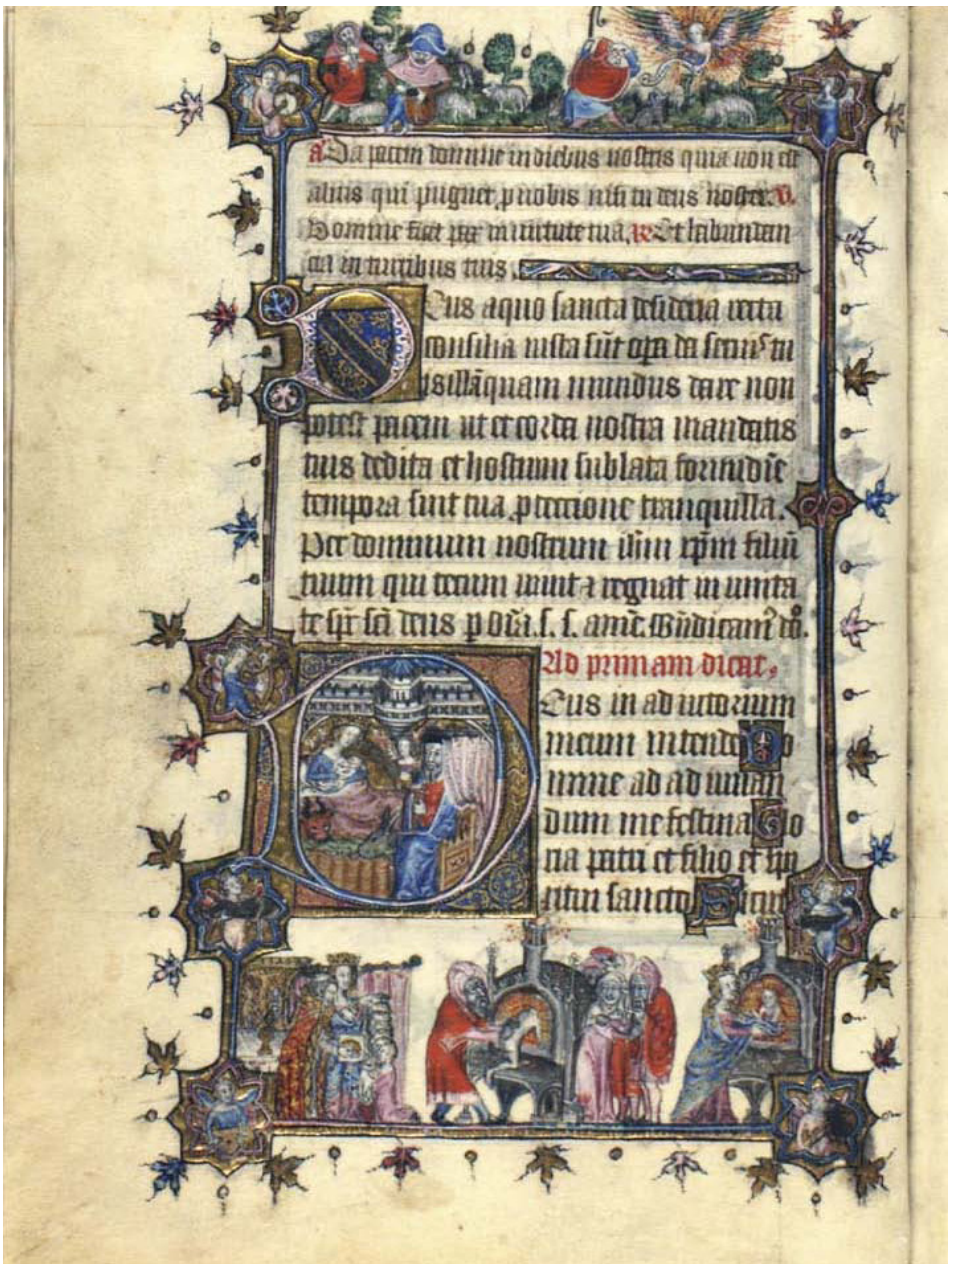 a Da pacem domine in diebus nostris quia non est
alius qui pugnet p nobis nisi tu deus noster. V.
Domine fiat pax in virtute tua. R Et habundan
cia in turribus tuis.
Deus a quo sancta desideria recta
consilia iusta sūt opa da seruis tu
is illā quam mundus dare non
potest pacem ut et corda nostra mandatis
tuis dedita et hostium sublata formidīe
tempora sint tua ptectione tranquilla.
Per dominum nostrum ihm xpm filiū
tuum qui tecum uiuit et regnat in unita
te spс sci deus p oīa. s. s. amē.
Ad primam dicat.
Deus in ad iutorium
meum intende Do
mine ad ad iuuan
dum me festina Glo
ria patri et filio et spi
ritui sancto Sicut